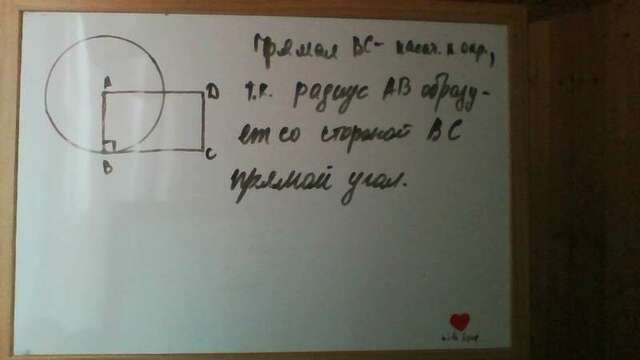 Прямая BC - касат. к окр.,
т.к. радиус AB образу-
ет со стороной BC
прямой угол.
A
D
B
C